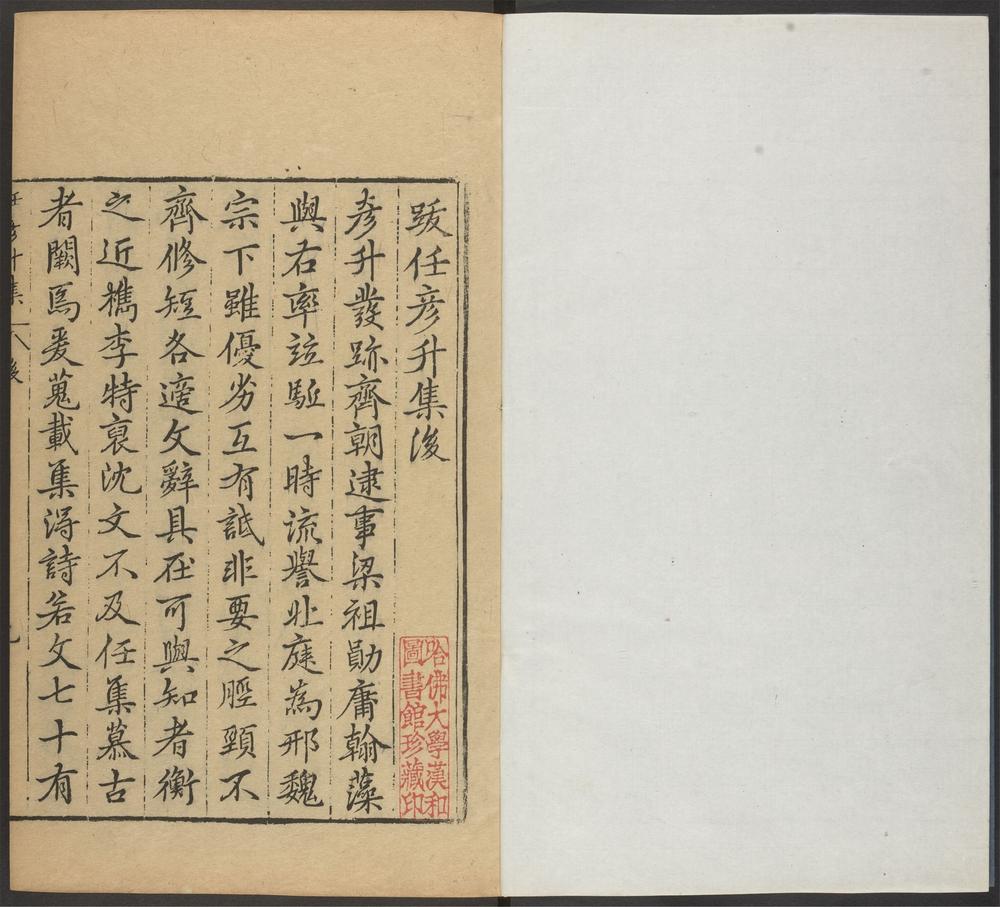 跋任彥升集後
彥升發跡齊朝逮事梁祖勛庸翰藻
與右率竝駈一時流譽北庭為邢魏
宗下雖優劣互有詆非要之脛頸不
齊修短各適文辭具在可與知者衡
之近檇李特裒沈文不及任集慕古
者闕焉爰蒐載集得詩若文七十有
任彥升集
後
哈佛大學漢和
圖書館珍藏印